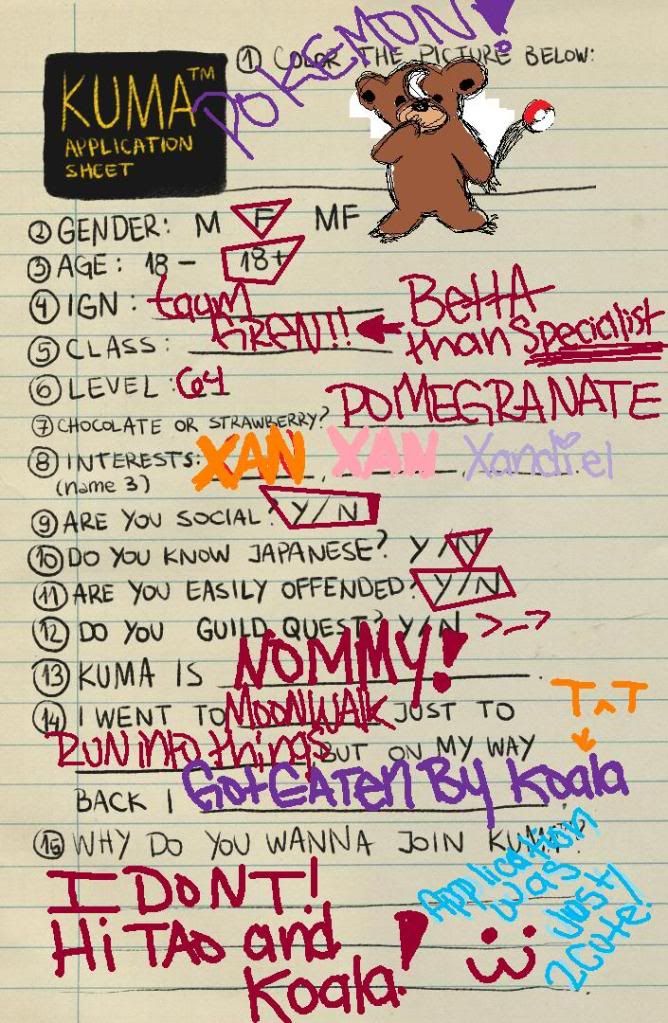 POKEMON!
KUMA™
APPLICATION
SHEET
① COLOR THE PICTURE BELOW:
② GENDER: M F MF
③ AGE: 18- 18+
④ IGN: taym
⑤ CLASS: GREN!! ← BettA than Specialist
⑥ LEVEL: 64
⑦ CHOCOLATE OR STRAWBERRY? POMEGRANATE
⑧ INTERESTS: XAN, XAN, Xandiel
(name 3)
⑨ ARE YOU SOCIAL? Y/N
⑩ DO YOU KNOW JAPANESE? Y/N
⑪ ARE YOU EASILY OFFENDED? Y/N
⑫ DO YOU GUILD QUEST? Y/N >_>
⑬ KUMA IS NOMMY!
⑭ I WENT TO MOONWALK JUST TO
RUN into things BUT ON MY WAY
TnT
BACK I Got EATEN BY Koala
⑮ WHY DO YOU WANNA JOIN KUMA?
I DONT!
Hi TAO and
Koala!
Application
was
Just
2 Cute!